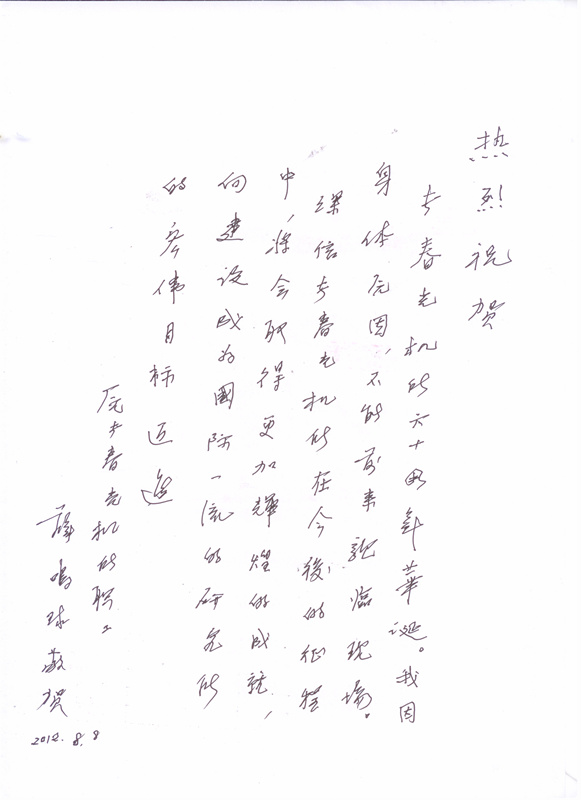 热烈!祝贺
长春光机所六十周年華诞。我因
身体原因,不能前来親臨现場。
深信长春光机所在今後的征程
中,将会取得更加輝煌的成就,
向建设成为國际一流的研究所
的宏伟目标迈進
原长春光机所职工
薛鸣球敬贺
2012.8.8